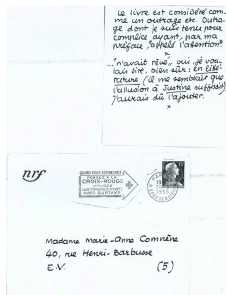 Le livre est considéré com-
me un outrage etc. Outra-
ge dont je suis tenu pour
complice ayant, par ma
préface, "appelé l'attention".
*
..."n'avait rêvé", oui, je vou-
lais dire, bien sûr: en litté-
rature (il me semblait que
l'allusion à Justine suffisait)
j'aurais dû l'ajouter.
*
nrf
QUAND VOUS AFFRANCHIREZ
PENSEZ A LA
CROIX-ROUGE
UTILISEZ
LES TIMBRES-POSTE
AVEC SURTAXE
Madame Marie-Anne Comnène
40, rue Henri-Barbusse
E.V. (5)